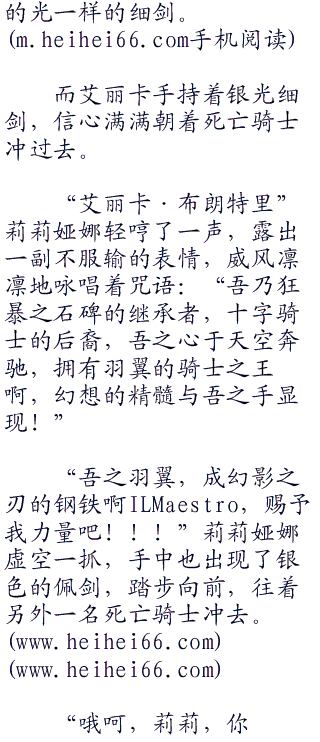 的光一样的细剑。
(m.heihei66.com手机阅读)
而艾丽卡手持着银光细
剑，信心满满朝着死亡骑士
冲过去。
“艾丽卡·布朗特里”
莉莉娅娜轻哼了一声，露出
一副不服输的表情，威风凛
凛地咏唱着咒语：“吾乃狂
暴之石碑的继承者，十字骑
士的后裔，吾之心于天空奔
驰，拥有羽翼的骑士之王
啊，幻想的精髓与吾之手显
现！”
“吾之羽翼，成幻影之
刃的钢铁啊ILMaestro，赐予
我力量吧！！！”莉莉娅娜
虚空一抓，手中也出现了银
色的佩剑，踏步向前，往着
另外一名死亡骑士冲去。
(www.heihei66.com)
(www.heihei66.com)
“哦呵，莉莉，你